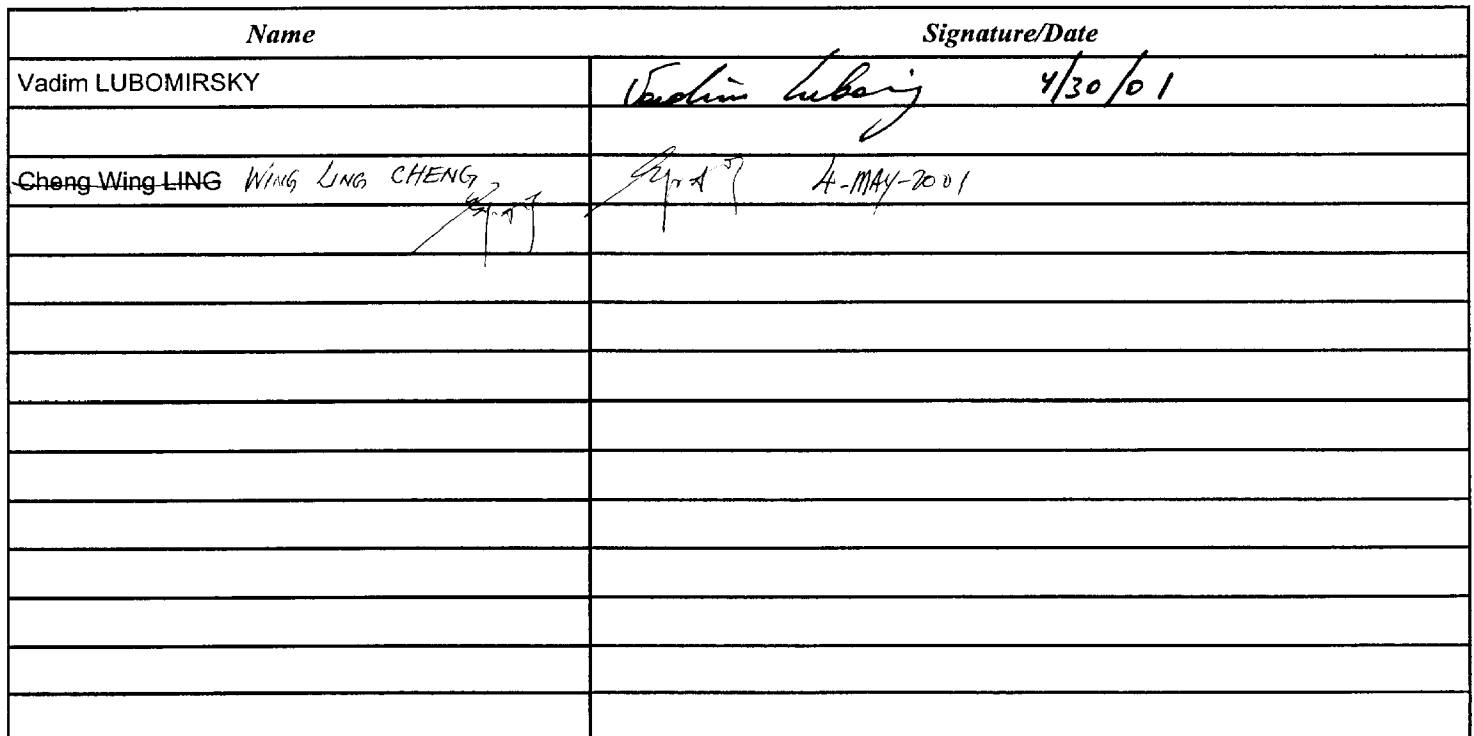 Name Signature/Date
Vadim LUBOMIRSKY Vadim Lubomirsky 4/30/01
Cheng Wing LING WING LING CHENG 4-MAY-2001